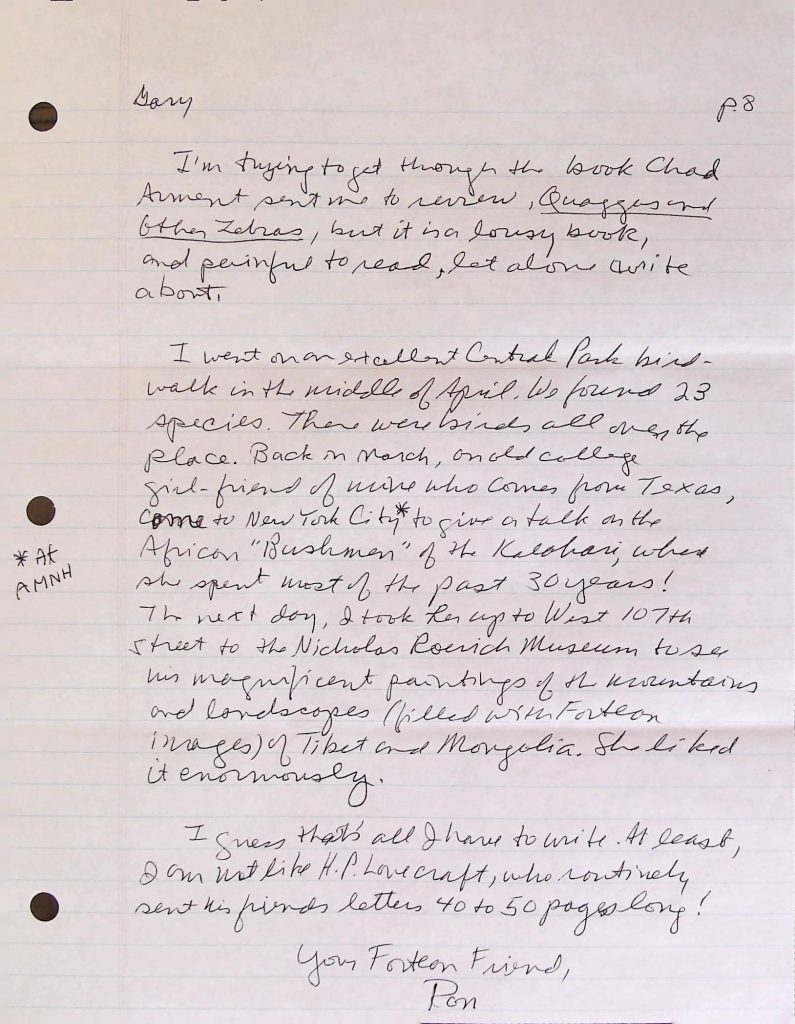 Gary
p.8
I'm trying to get through the book Chad
Arment sent me to review, Quaggas and
Other Zebras, but it is a lousy book,
and painful to read, let alone write
about.
I went on an excellent Central Park bird-
walk in the middle of April. We found 23
species. There were birds all over the
place. Back in March, an old college
girl-friend of mine who comes from Texas,
came to New York City* to give a talk on the
African "Bushmen" of the Kalahari, where
she spent most of the past 30 years!
* At
AMNH
The next day, I took her up to West 107th
Street to the Nicholas Roerich Museum to see
his magnificent paintings of the mountains
and landscapes (filled with Fortean
images) of Tibet and Mongolia. She liked
it enormously.
I guess that's all I have to write. At least,
I am not like H.P. Lovecraft, who routinely
sent his friends letters 40 to 50 pages long!
Your Fortean Friend,
Ron